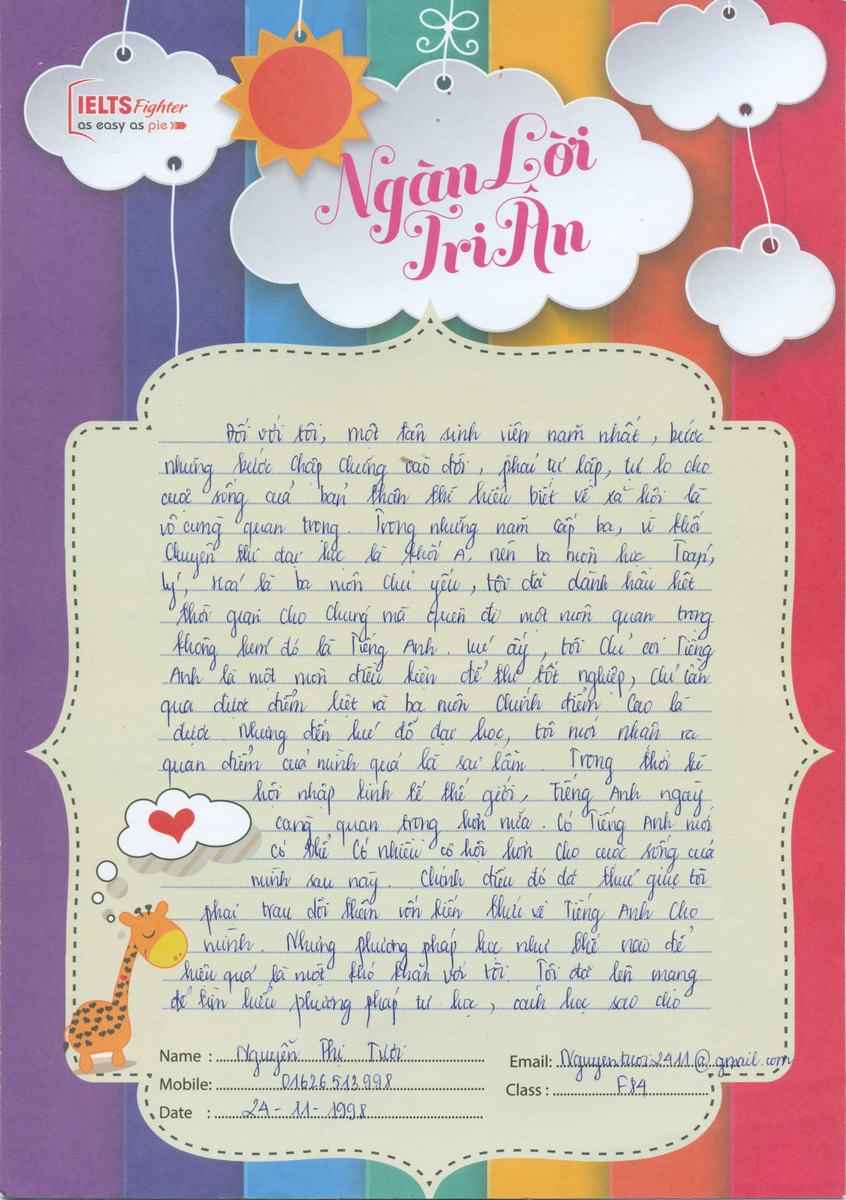 IELTS Fighter
as easy as pie
Ngàn Lời
Tri Ân
Đối với tôi, một tân sinh viên năm nhất, bước
những bước chập chững vào đời, phải tự lập, tự lo cho
cuộc sống của bản thân thì hiểu biết về xã hội là
vô cùng quan trọng. Trong những năm cấp ba, vì khối
chuyên thi đại học là khối A, nên ba môn học Toán,
Lý, Hoá là ba môn chủ yếu, tôi đã dành hầu hết
thời gian cho chúng mà quên đi một môn quan trọng
không kém đó là Tiếng Anh. Lúc ấy, tôi chỉ coi Tiếng
Anh là một môn điều kiện để thi tốt nghiệp, chỉ cần
qua được điểm liệt và ba môn chính điểm cao là
được. Nhưng đến lúc đỗ đại học, tôi mới nhận ra
quan điểm của mình quả là sai lầm. Trong thời kì
hội nhập kinh tế thế giới, Tiếng Anh ngày
càng quan trọng hơn nữa. Có Tiếng Anh mới
có thể có nhiều cơ hội hơn cho cuộc sống của
mình sau này. Chính điều đó đã thúc giục tôi
phải trau dồi thêm vốn kiến thức về Tiếng Anh cho
mình. Nhưng phương pháp học như thế nào để
hiệu quả là một khó khăn với tôi. Tôi đã lên mạng
để tìm hiểu phương pháp tự học, cách học sao cho
Name : Nguyễn Thị Tươi
Email: Nguyentuoi2411@gmail.com
Mobile: 01626513998
Class : F84
Date : 24-11-1998